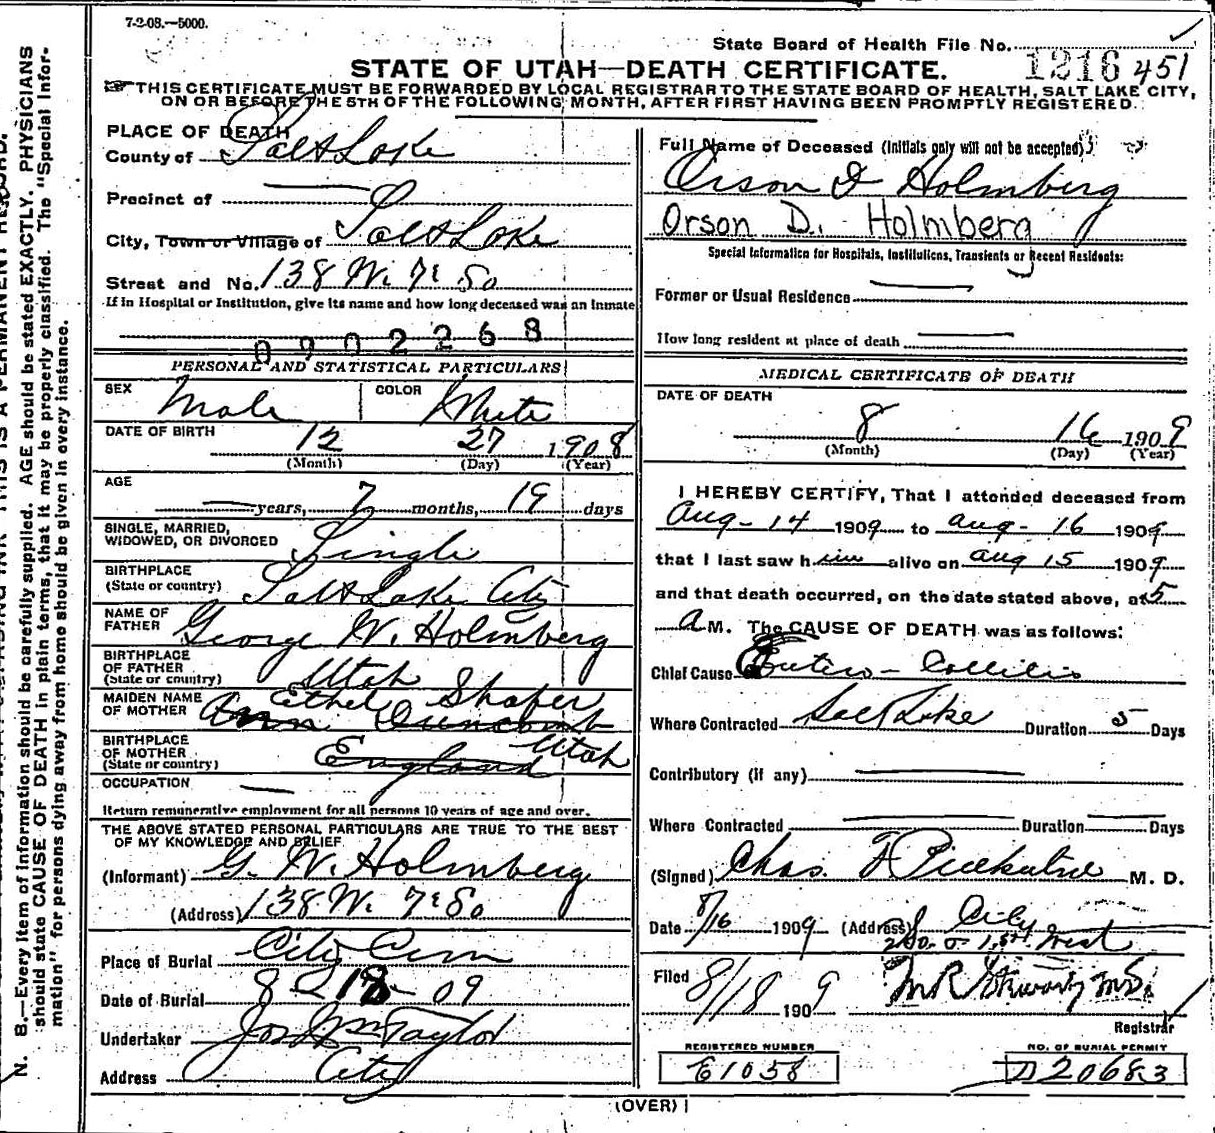 7-2-08.—5000.
State Board of Health File No. 1216 451
STATE OF UTAH—DEATH CERTIFICATE.
THIS CERTIFICATE MUST BE FORWARDED BY LOCAL REGISTRAR TO THE STATE BOARD OF HEALTH, SALT LAKE CITY,
ON OR BEFORE THE 5TH OF THE FOLLOWING MONTH, AFTER FIRST HAVING BEEN PROMPTLY REGISTERED.
N. B.—Every item of information should be carefully supplied. AGE should be stated EXACTLY. PHYSICIANS
should state CAUSE OF DEATH in plain terms, that it may be properly classified. The "Special Infor-
mation" for persons dying away from home should be given in every instance.
PLACE OF DEATH
County of Salt Lake
Precinct of
City, Town or Village of Salt Lake
Street and No. 138 W. 7th So
If in Hospital or Institution, give its name and how long deceased was an inmate
0902268
PERSONAL AND STATISTICAL PARTICULARS
SEX Male COLOR White
DATE OF BIRTH 12 27 1908
(Month) (Day) (Year)
AGE
years, 7 months, 19 days
SINGLE, MARRIED,
WIDOWED, OR DIVORCED Single
BIRTHPLACE
(State or country) Salt Lake City
NAME OF
FATHER George W. Holmberg
BIRTHPLACE
OF FATHER
(State or country) Utah
MAIDEN NAME Ethel Shafer
OF MOTHER Ann Duncomb
BIRTHPLACE Utah
OF MOTHER
(State or country) England
OCCUPATION
Return remunerative employment for all persons 10 years of age and over.
THE ABOVE STATED PERSONAL PARTICULARS ARE TRUE TO THE BEST
OF MY KNOWLEDGE AND BELIEF
(Informant) G. W. Holmberg
(Address) 138 W. 7th So
Place of Burial City Cem
Date of Burial 8-18-09
Undertaker Jos Wm Taylor
Address City
Full Name of Deceased (Initials only will not be accepted)
Orson D Holmberg
Orson D. Holmberg
Special Information for Hospitals, Institutions, Transients or Recent Residents:
Former or Usual Residence
How long resident at place of death
MEDICAL CERTIFICATE OF DEATH
DATE OF DEATH
8 16 1909
(Month) (Day) (Year)
I HEREBY CERTIFY, That I attended deceased from
Aug-14 1909 to Aug-16 1909
that I last saw him alive on Aug 15 1909
and that death occurred, on the date stated above, at 5
A M. The CAUSE OF DEATH was as follows:
Chief Cause Entero-Collitis
Where Contracted Salt Lake Duration 5 Days
Contributory (if any)
Where Contracted Duration Days
(Signed) Chas. F M. D.
Date 8/16 1909 (Address) City
West
Filed 8/18 1909 M R Stewart MD
Registrar
REGISTERED NUMBER
E1058
NO. OF BURIAL PERMIT
D20683
(OVER)